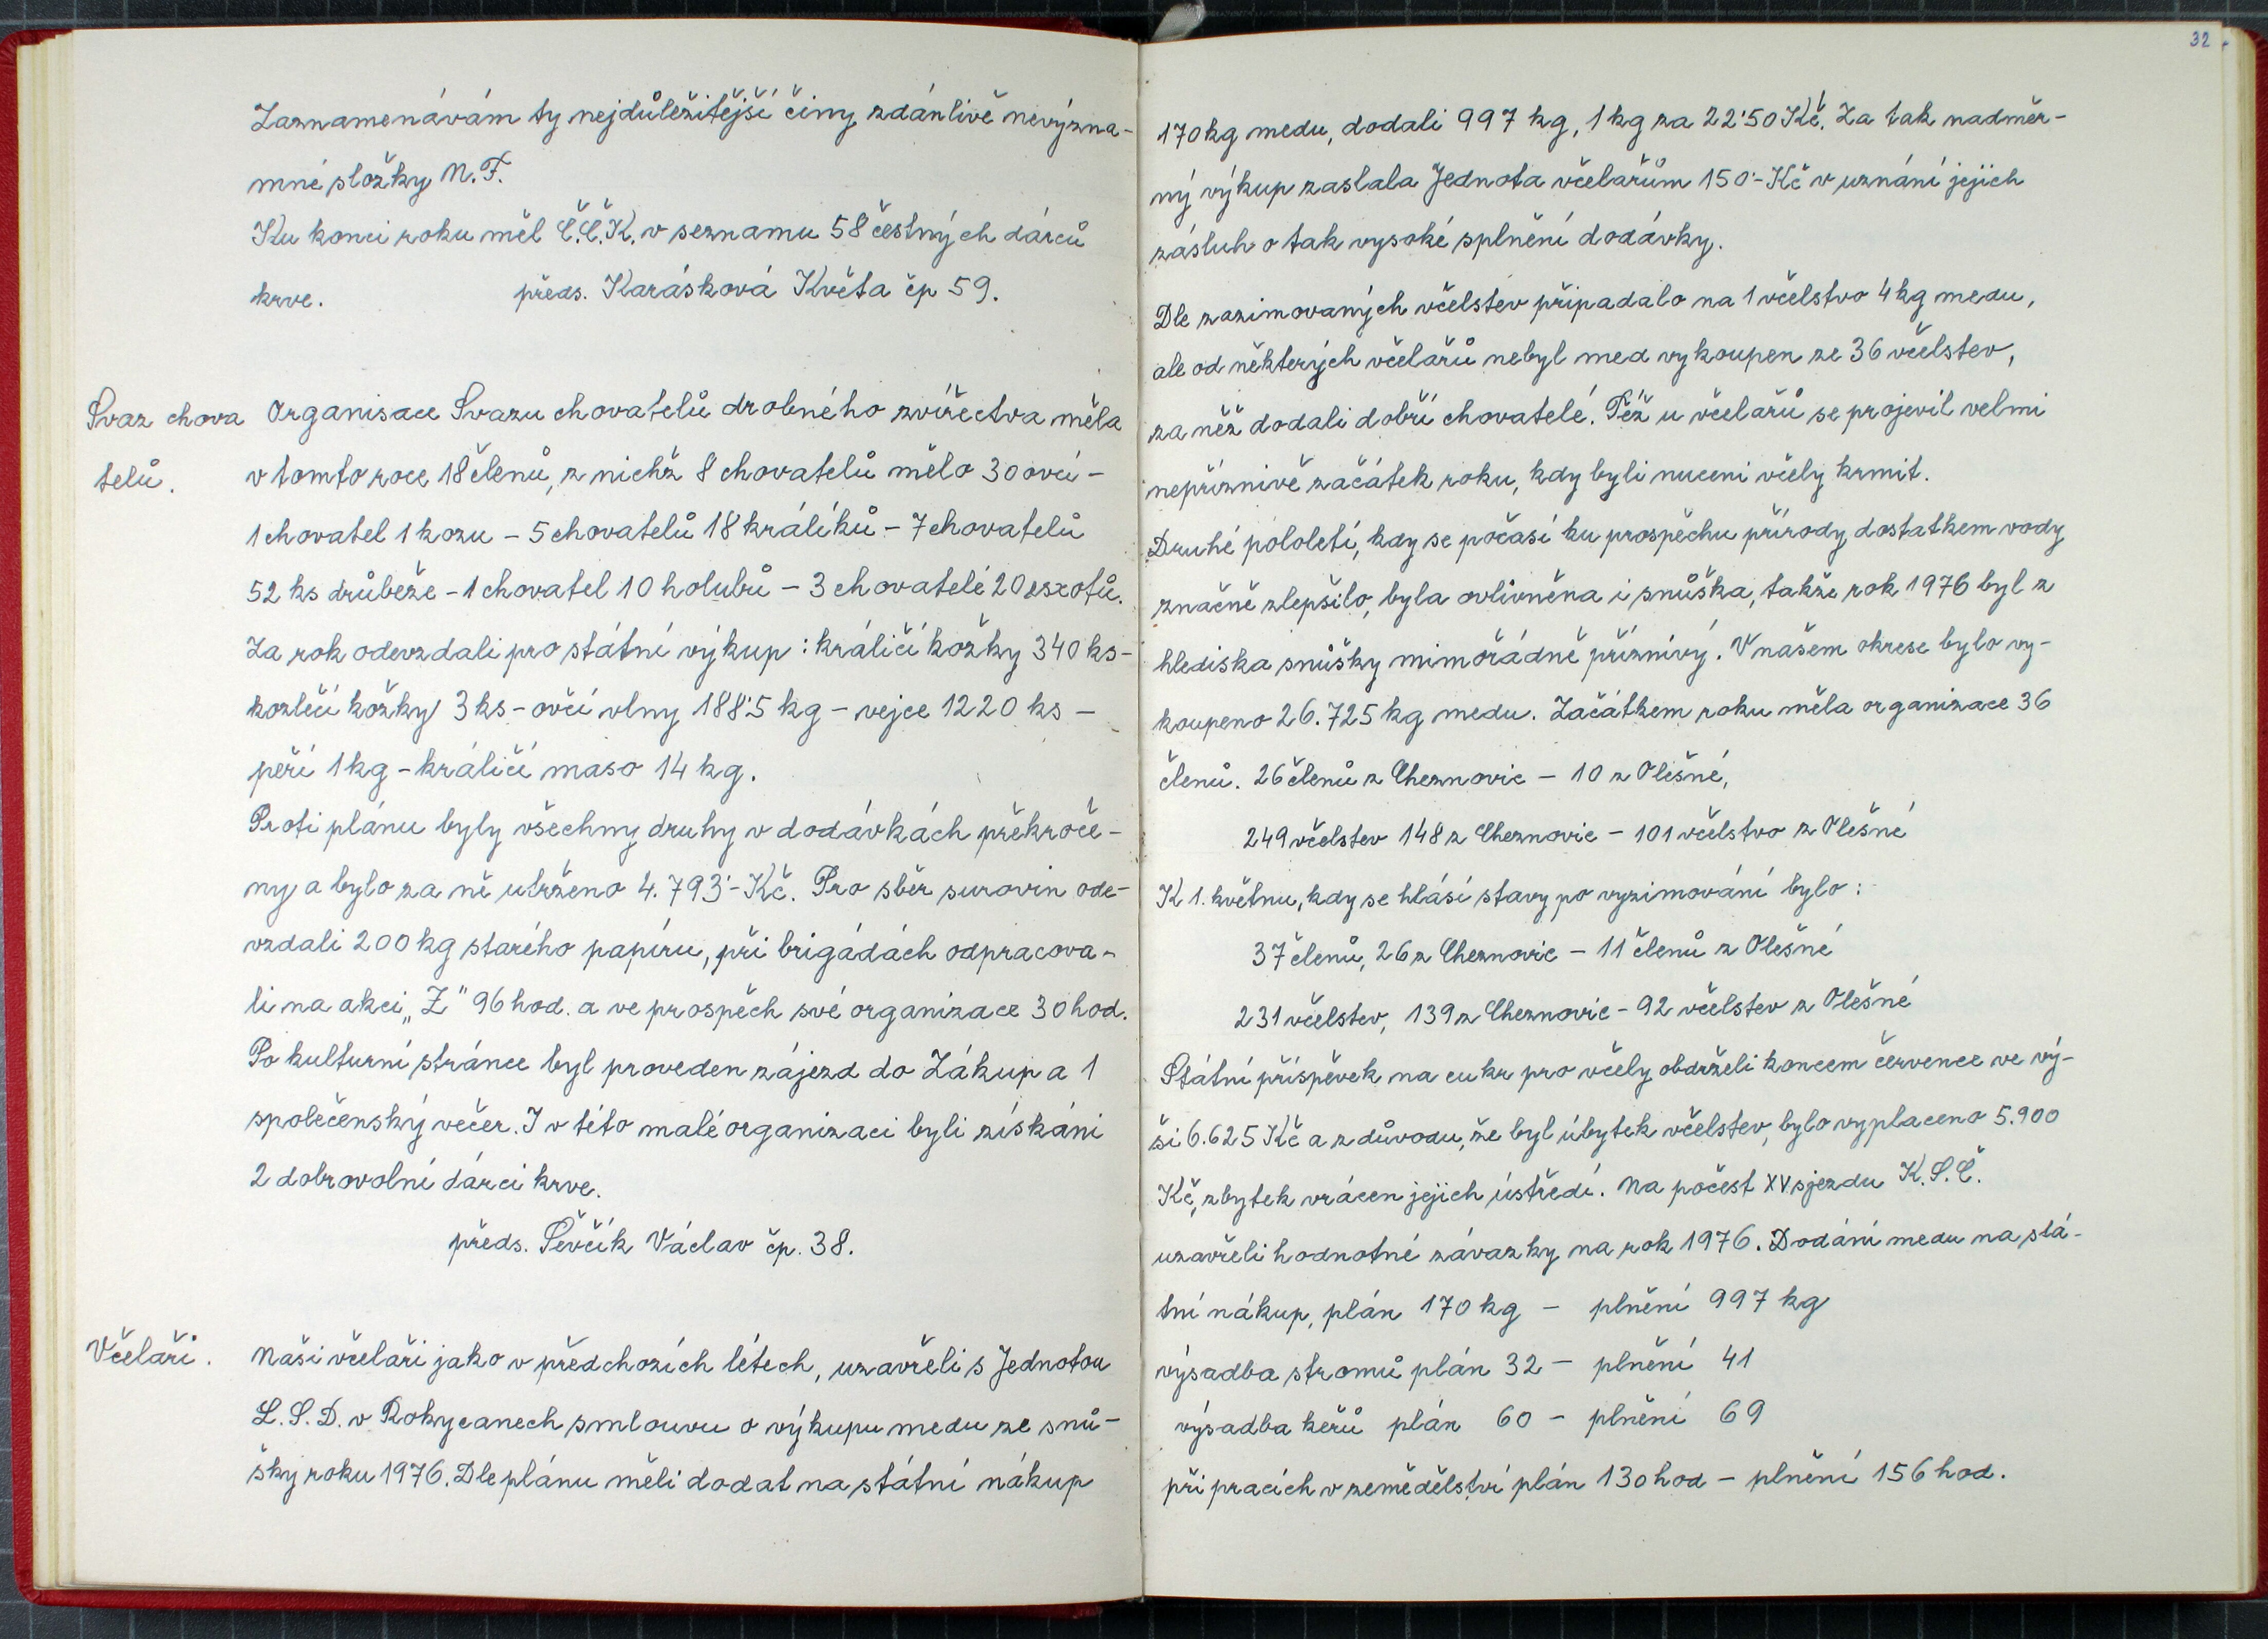 Zaznamenávám ty nejdůležitější činy zdánlivě nevýzna-
mné složky N.F.
Ku konci roku měl Č.Č.K. v seznamu 58 čestných dárců
krve. předs. Karásková Květa čp 59.
Svaz chova
telů.
Organisace Svazu chovatelů drobného zvířectva měla
v tomto roce 18 členů, z nichž 8 chovatelů mělo 30 ovcí -
1 chovatel 1 kozu - 5 chovatelů 18 králíků - 7 chovatelů
52 ks drůbeže - 1 chovatel 10 holubů - 3 chovatelé 20 esxotů.
Za rok odevzdali pro státní výkup : králičí kožky 340 ks -
kozlečí kožky 3 ks - ovčí vlny 188'5 kg - vejce 1220 ks -
peří 1 kg - králičí maso 14 kg.
Proti plánu byly všechny druhy v dodávkách překroče-
ny a bylo za ně utrženo 4.793'- Kč. Pro sběr surovin ode-
vzdali 200 kg starého papíru, při brigádách odpracova-
li na akci „Z" 96 hod. a ve prospěch své organizace 30 hod.
Po kulturní stránce byl proveden zájezd do Zákup a 1
společenský večer. I v této malé organizaci byli získáni
2 dobrovolní dárci krve.
předs. Ševčík Václav čp. 38.
Včelaři.
Naši včelaři jako v předchozích létech, uzavřeli s Jednotou
L.S.D. v Rokycanech smlouvu o výkupu medu ze snů-
šky roku 1976. Dle plánu měli dodat na státní nákup
32
170 kg medu, dodali 997 kg, 1 kg za 22'50 Kč. Za tak nadměr-
ný výkup zaslala Jednota včelařům 150'- Kč v uznání jejich
zásluh o tak vysoké splnění dodávky.
Dle zazimovaných včelstev připadalo na 1 včelstvo 4 kg medu,
ale od některých včelařů nebyl med vykoupen ze 36 včelstev,
za něž dodali dobří chovatelé. Též u včelařů se projevil velmi
nepříznivě začátek roku, kdy byli nuceni včely krmit.
Druhé pololetí, kdy se počasí ku prospěchu přírody dostatkem vody
značně zlepšilo, byla ovlivněna i snůška, takže rok 1976 byl z
hlediska snůšky mimořádně příznivý. V našem okrese bylo vy-
koupeno 26.725 kg medu. Začátkem roku měla organizace 36
členů. 26 členů z Cheznovic - 10 z Olešné,
249 včelstev 148 z Cheznovic - 101 včelstvo z Olešné
K 1. květnu, kdy se hlásí stavy po vyzimování bylo :
37 členů, 26 z Cheznovic - 11 členů z Olešné
231 včelstev, 139 z Cheznovic - 92 včelstev z Olešné
Státní příspěvek na cukr pro včely obdrželi koncem července ve vý-
ši 6.625 Kč a z důvodu, že byl úbytek včelstev, bylo vyplaceno 5.900
Kč, zbytek vrácen jejich ústředí. Na počest XV sjezdu K.S.Č.
uzavřeli hodnotné závazky na rok 1976. Dodání medu na stá-
tní nákup, plán 170 kg - plnění 997 kg
výsadba stromů plán 32 - plnění 41
výsadba keřů plán 60 - plnění 69
při pracích v zemědělství plán 130 hod - plnění 156 hod.